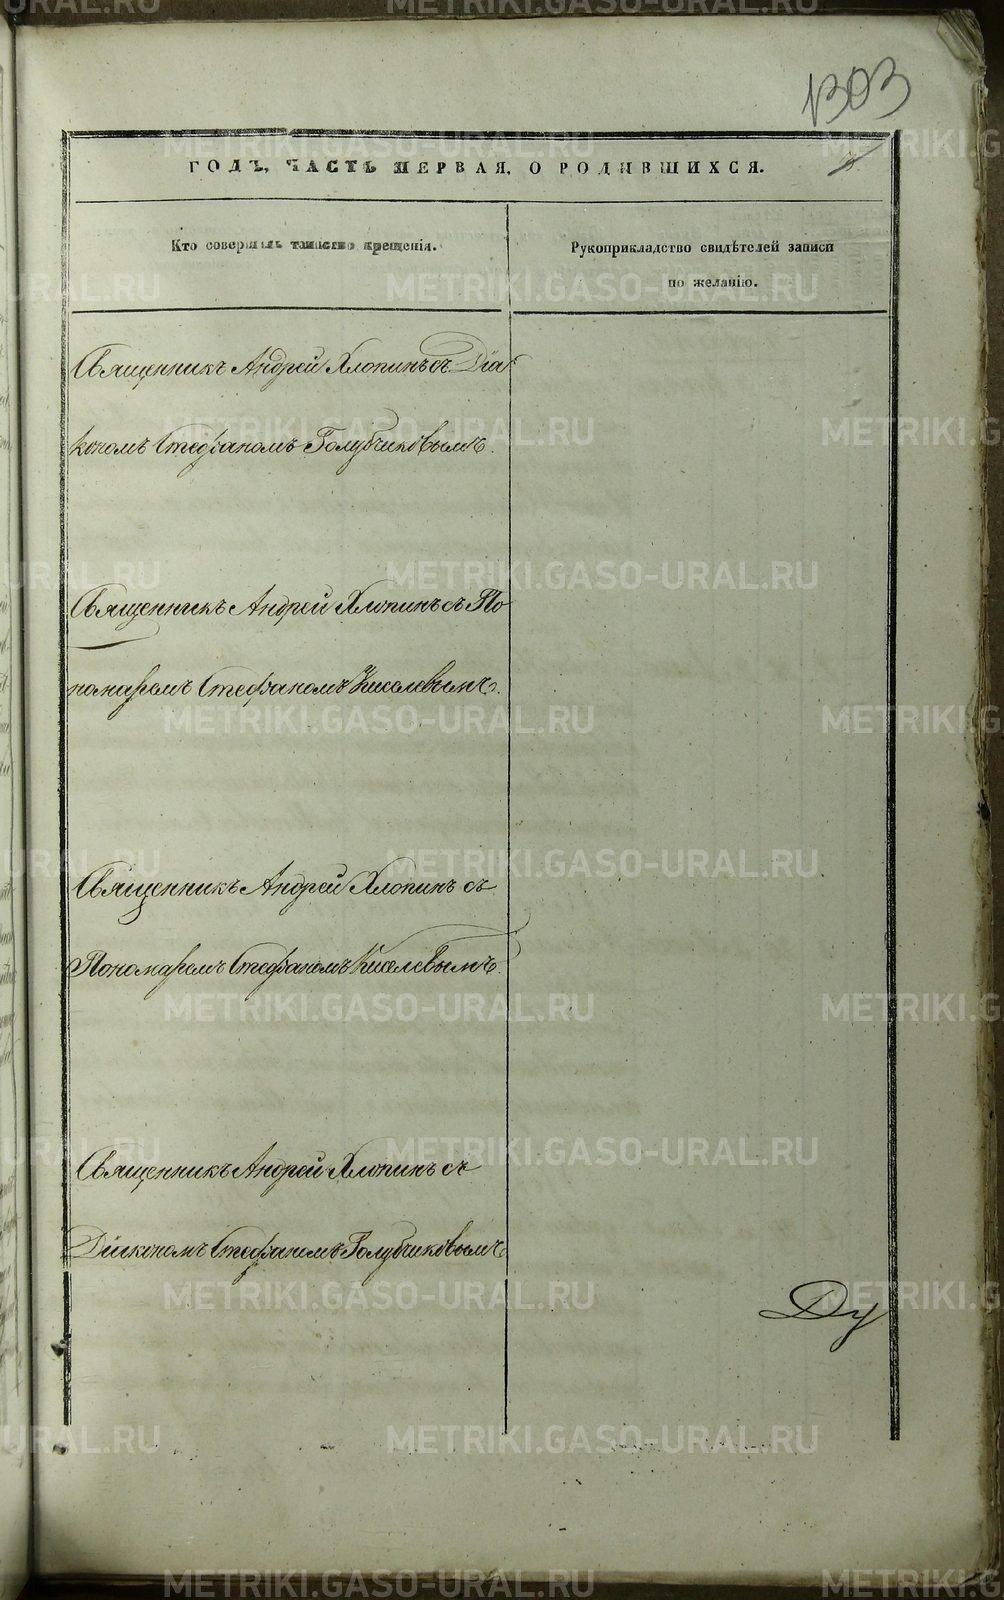 1303
ГОДЪ, ЧАСТЬ ПЕРВАЯ, О РОДИВШИХСЯ.
Кто совершалъ таинство крещенія.
Рукоприкладство свидѣтелей записи
по желанію.
Священникъ Андрей Хлопинъ съ Діа
кономъ Стефаномъ Голубчиковымъ.
Священникъ Андрей Хлопинъ съ По
номаремъ Стефаномъ Киселевымъ.
Священникъ Андрей Хлопинъ съ
Пономаремъ Стефаномъ Киселевымъ.
Священникъ Андрей Хлопинъ съ
Діакономъ Стефаномъ Голубчиковымъ
Ду
METRIKI.GASO-URAL.RU